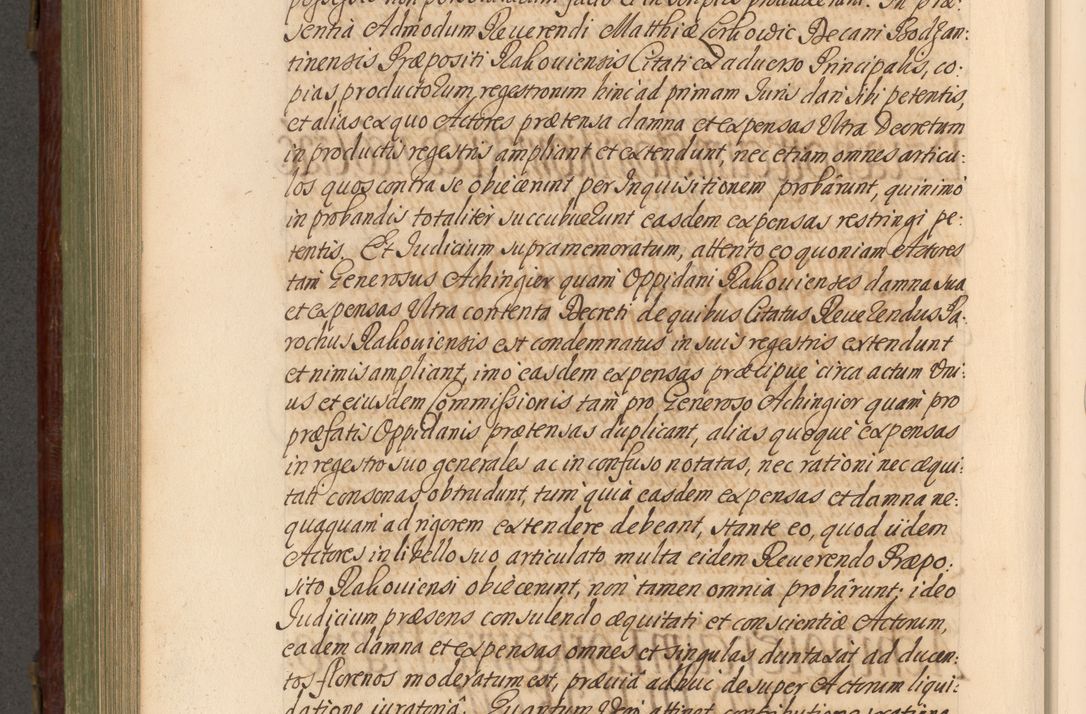 sentia Admodum Reverendi Matthiæ Corkowic Decani Bodzan:
tinensis Præpositi Rakoviensis Citati ex adverso Principalis, co:
pias productorum, regestrorum hinc ad primam Iuris dari sibi petentis,
et alias ex quo Actores prætensa damna et expensas Ultra Decretum
in productis regestris ampliant et extendunt, nec etiam omnes articu:
los quos contra se obiecerunt per Inquisitionem probârunt, quinimò
in probandis totalitèr succubuerunt easdem expensas restringi pe:
tentis. Et Iudicium supramemoratum, attento eo quoniam Actores
tam Generosus Achingier quam Oppidani Rakovienses damna sua
et expensas Ultra contenta Decreti de quibus Citatus Reverendus Pa:
rochus Rakoviensis est condemnatus in suis regestris extendunt
et nimis ampliant, imo easdem expensas præcipuè circa actum Uni:
us et eiusdem Commissionis tam pro Generoso Achingier quam pro
præfatis Oppidanis prætensas duplicant, alias quoque expensas
in regestro suo generales ac in confuso notatas, nec rationi nec æqui:
tati consonas obtrudunt, tum quia easdem expensas et damna ne:
quaquam ad rigorem extendere debeant, stante eo, quod iidem
Actores in libello suo articulato multa eidem Reverendo Præpo:
sito Rakoviensi obiècerunt, non tamen omnia probârunt; ideo
Iudicium præsens consulendo æquitati et conscientiæ Actorum,
eadem damna et expensas omnes et singulas duntaxat ad ducen:
tos florenos moderatum est, præviâ adhuc desuper Actorum liqui:
datione iuratoriâ. Quantum Uero attinet contributiones